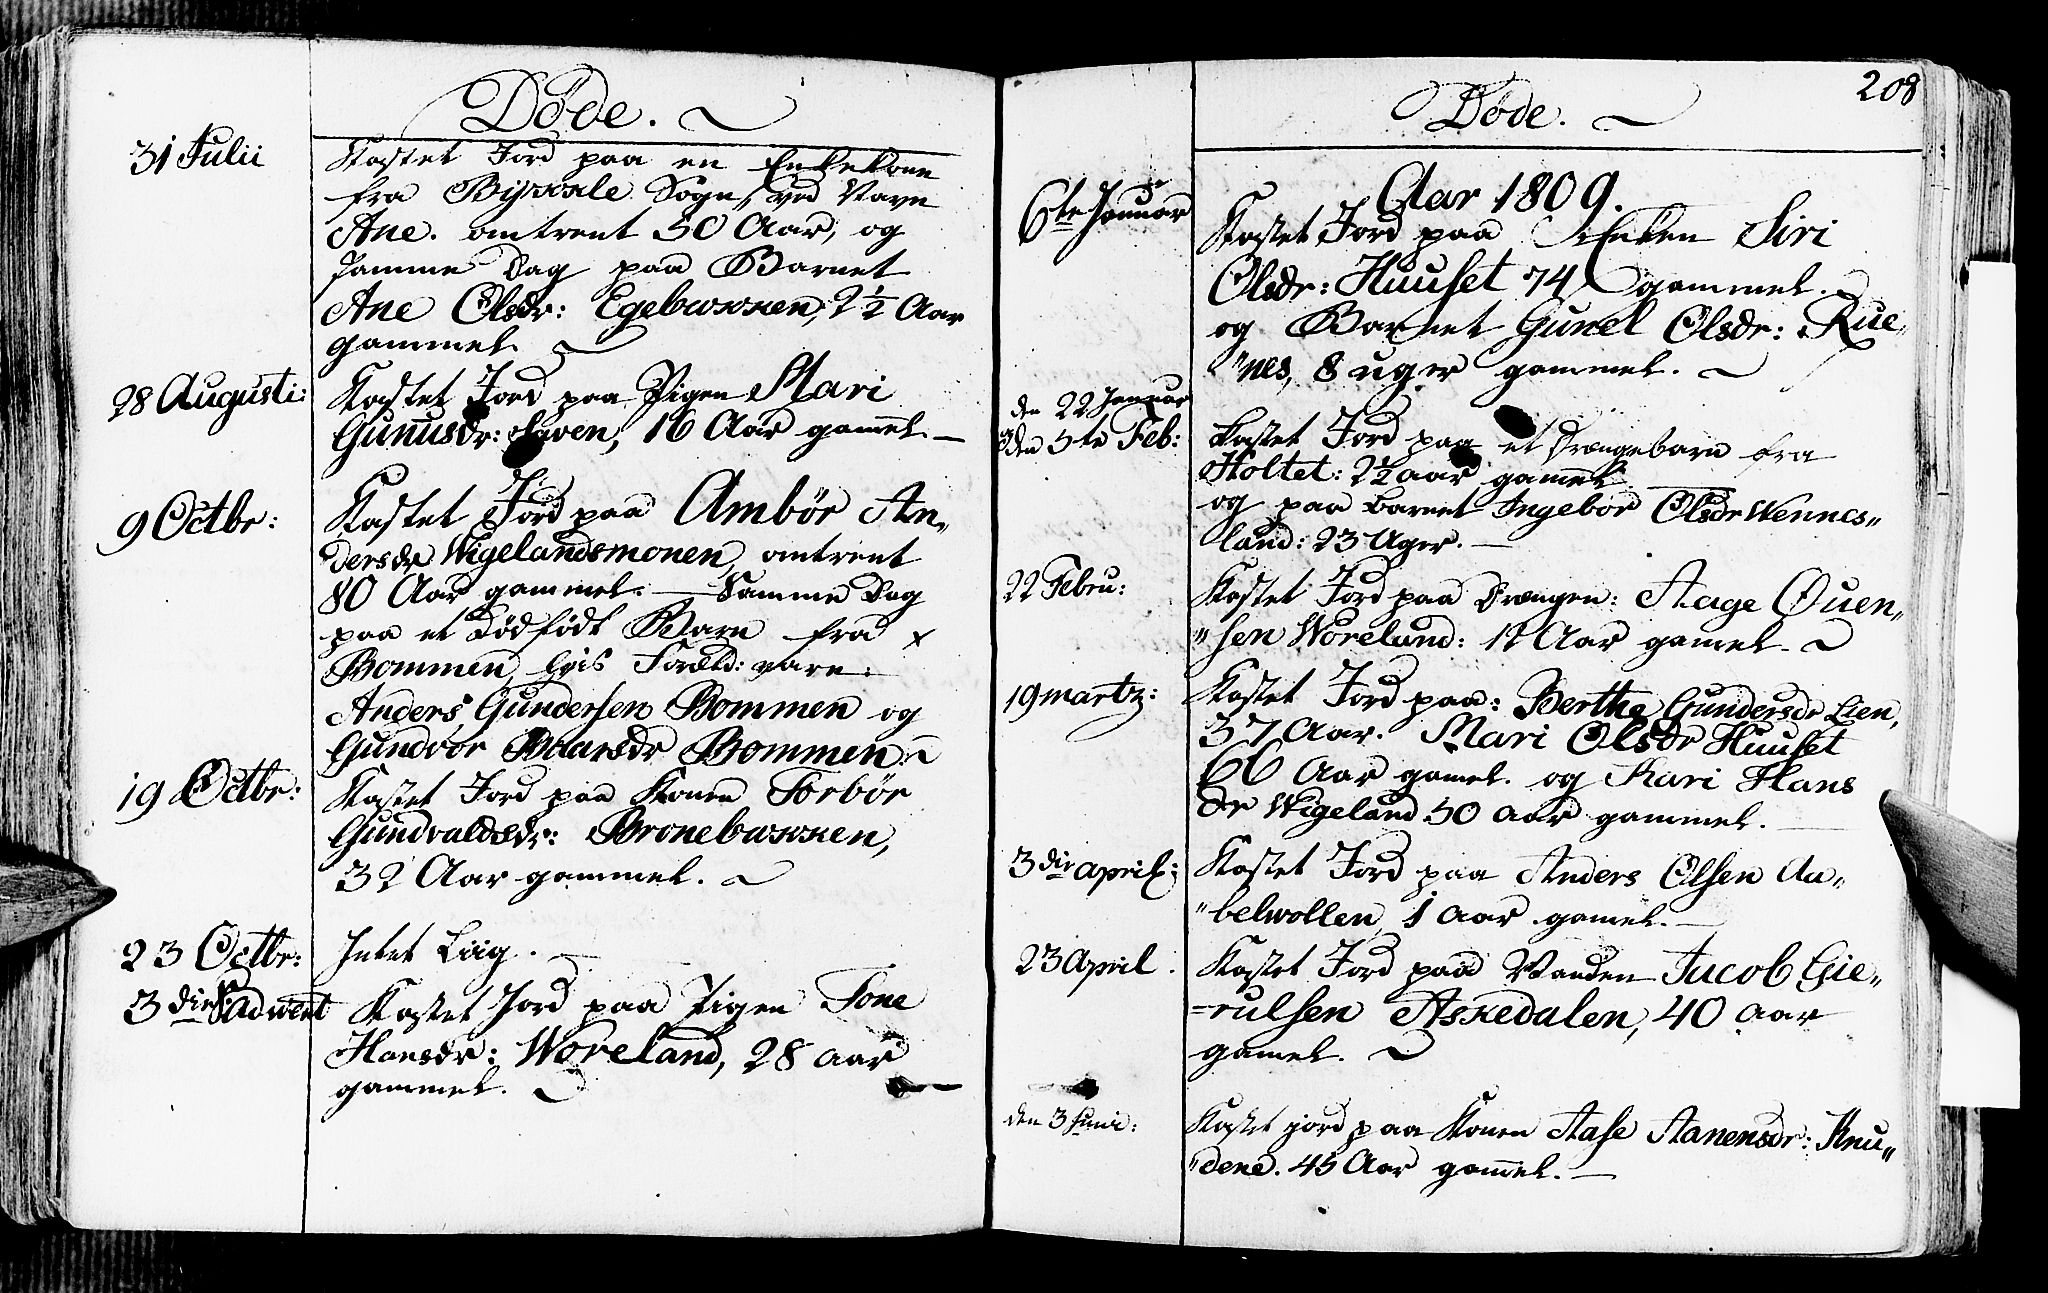 Døde.
31 Julii
Kastet Jord paa en Enkekone
fra Sogn, ved Navn
Ane. omtrent 50 Aar, og
samme Dag paa Barnet
Ane Olsdr: Egebaxxen, 2½ Aar
gammel.
28 Augusti:
Kastet Jord paa Pigen Mari
Gunusdr: 16 Aar gam̅el
9 Octbr:
Kastet Jord paa Ambør An„
dersdr Wigelandsmonen, omtrent
80 Aar gammel. Samme Dag
paa et Dødfødt Barn fra x
Bommen, hvis Foræld: vare
Anders Gundersen Bommen og
Gundvor Baarsdr Bommen.
19 Octbr:
Kastet Jord paa Konen Torbør
Gundvaldsdr:
32 Aar gammel.
23 Octbr:
Intet Liig.
3die S. Adwent
Kastet Jord paa Pigen Tone
Hansdr: Woreland, 28 aar
gammel.
208
Døde.
Aar 1809.
6te Januar
Kastet Jord paa Enken Siri
Olsdr: Huuset 74 gammel.
og Barnet Gunel Olsdr: Rue„
„nes, 8 uger gammel.
den 22 Januar
den 5te Feb:
Kastet Jord paa et Drængebarn fra
Holtet: 2½ aar gam̅el
og paa Barnet Ingebor Olsdr Wennes„
land: 23 Uger.
22 Febru:
Kastet Jord paa Drængen: Aage Ouen„
„sen Woreland: Aar gamel.
19 martz:
Kastet Jord paa: Berthe Gundersdr Lien,
37 Aar. Mari Olsdr Huuset
66 Aar gamel. og Kari Hans
dr Wigeland 50 aar gammel.
3die april:
Kastet Jord paa Anders Olsen Au„
„belwollen, 1 aar gamel.
23 April.
Kastet Jord paa Manden Jacob Gie„
=rulsen Askedalen, 40 aar
gamel.
den 3 Juni:
Kastet jord paa Konen Aase Aanensdr: Knu„
„dene. 45 Aar gam̅el.